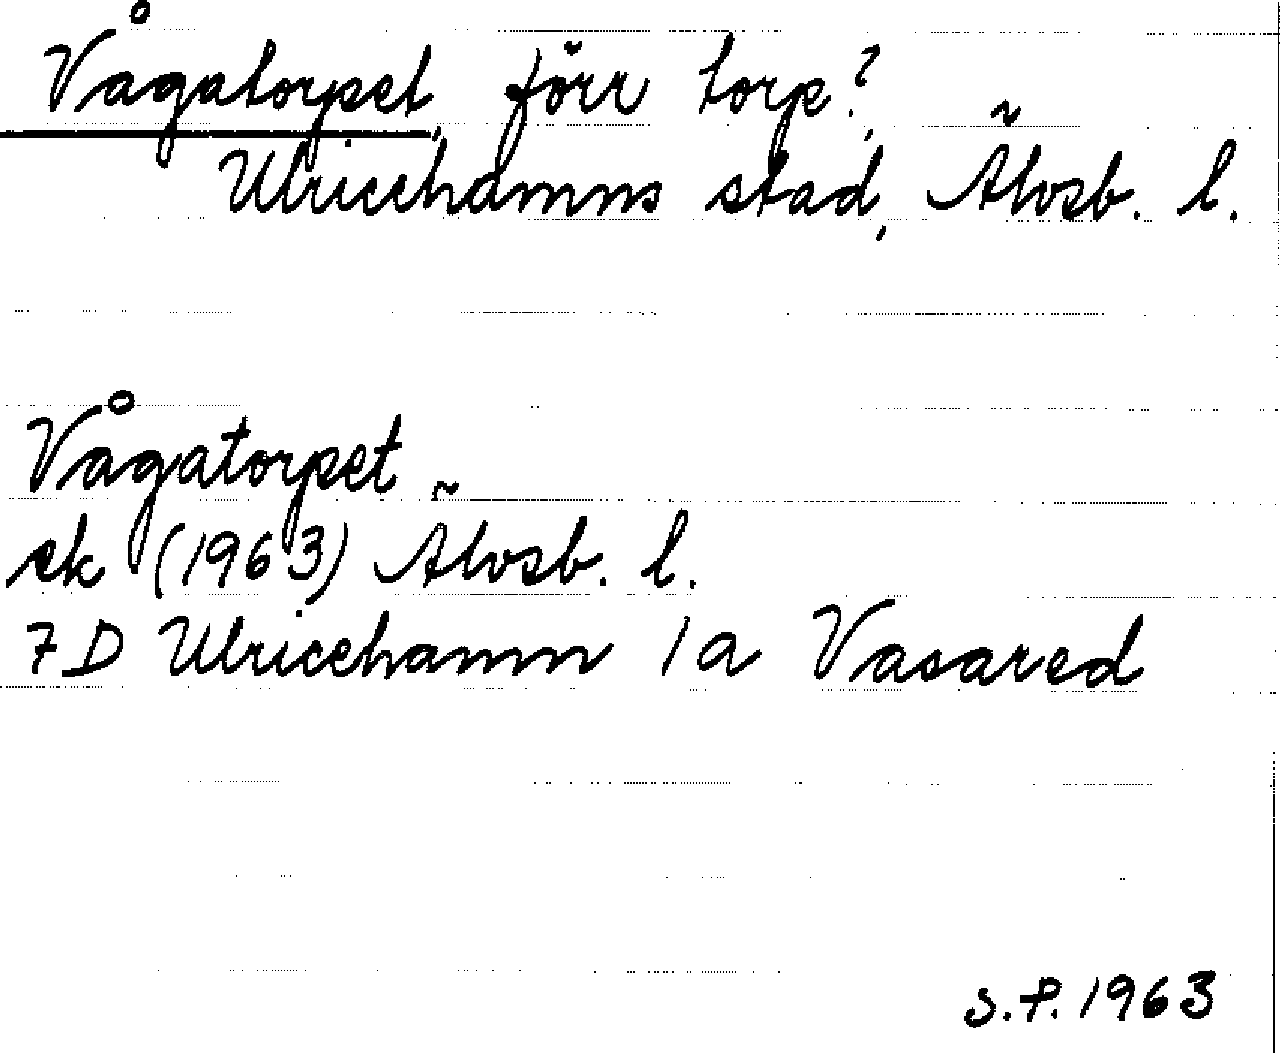 Vågatorpet, förr torp?,
Ulricehamns stad, Älvsb. l.
Vågatorpet
ek (1963) Älvsb. l.
7D Ulricehamn 1a Vasared
S.P. 1963